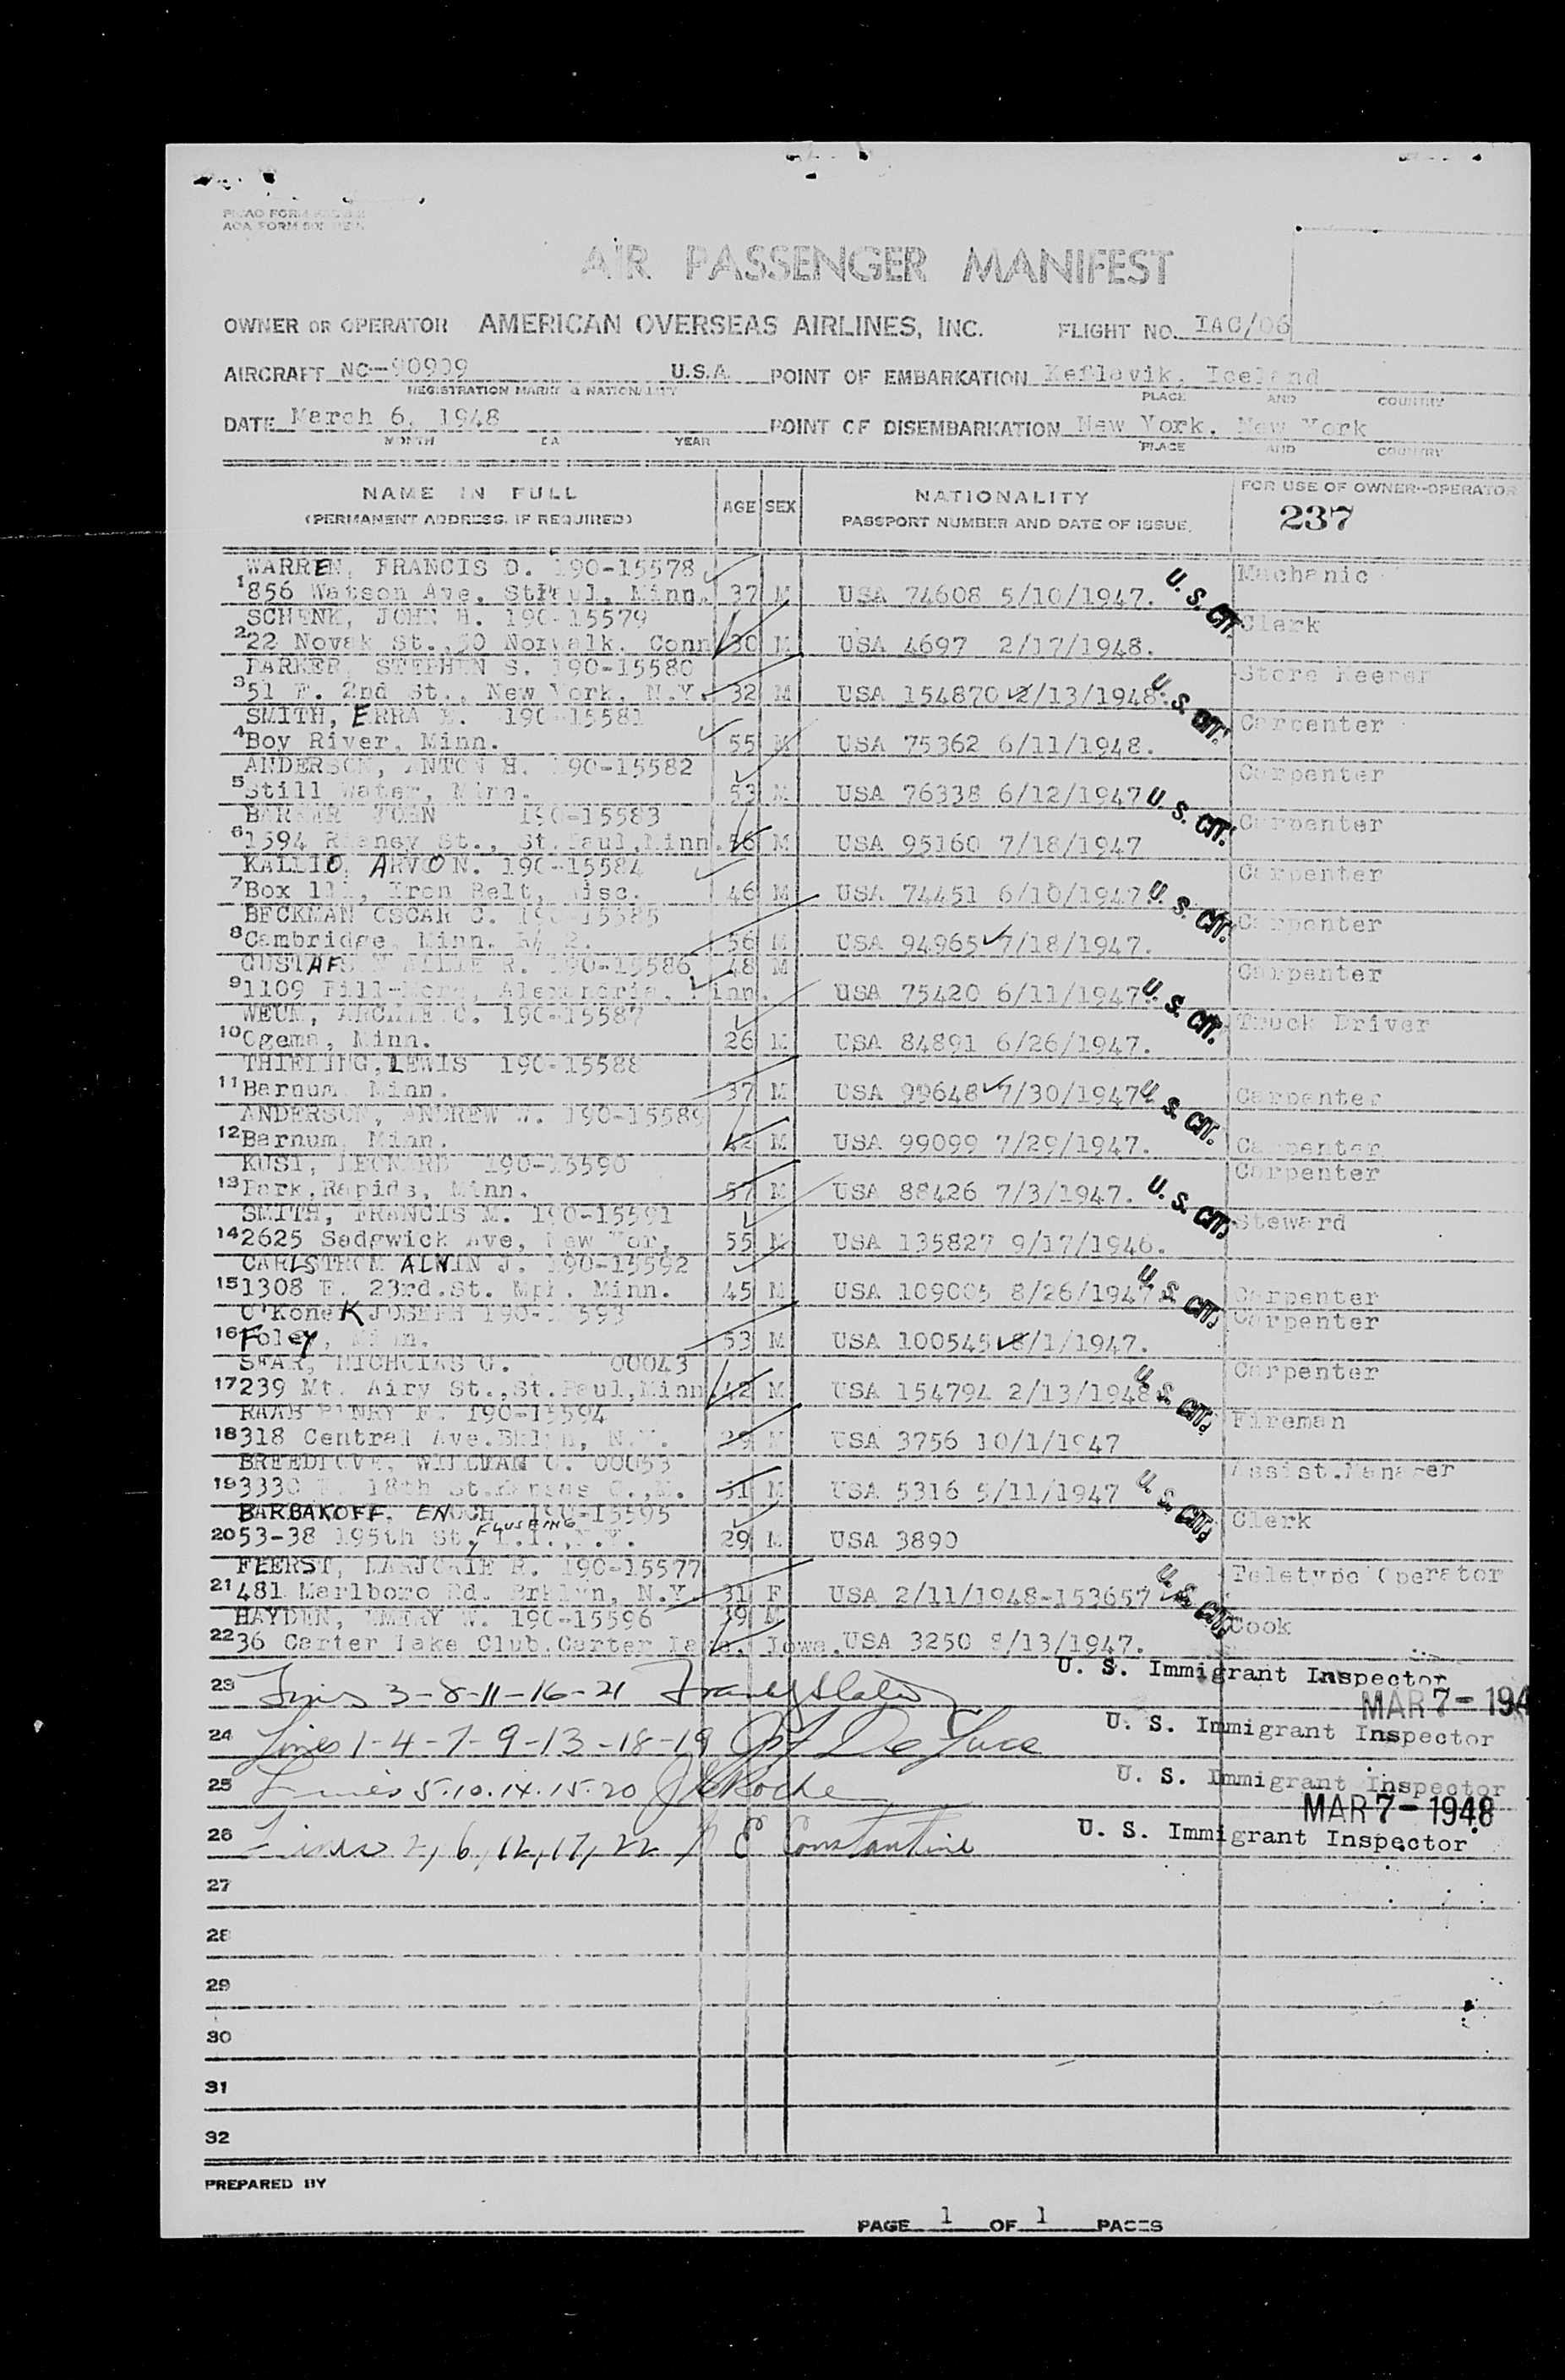 AIR PASSENGER MANIFEST
OWNER OR OPERATOR AMERICAN OVERSEAS AIRLINES, INC. FLIGHT NO. IAC/06
AIRCRAFT NC-90909 U.S.A. POINT OF EMBARKATION Keflavik, Iceland
REGISTRATION MARKS & NATIONALITY PLACE AND COUNTRY
DATE March 6, 1948 POINT OF DISEMBARKATION New York, New York
MONTH DAY YEAR PLACE AND COUNTRY
NAME IN FULL AGE SEX NATIONALITY FOR USE OF OWNER-OPERATOR
(PERMANENT ADDRESS, IF REQUIRED) PASSPORT NUMBER AND DATE OF ISSUE. 237
WARREN, FRANCIS O. 190-15578 Mechanic
1 856 Watson Ave, St Paul, Minn. 37 M USA 74608 5/10/1947. U. S. CIT.
SCHENK, JOHN H. 190-15579 Clerk
2 22 Novak St., SO Norwalk, Conn 30 M USA 4697 2/17/1948.
STEPHEN S. 190-15580 Store Keeper
3 51 E. 2nd St., New York, N.Y. 32 M USA 154870 2/13/1948. U. S. CIT.
SMITH, 190-15581 Carpenter
4 Boy River, Minn. 55 M USA 75362 6/11/1948.
ANDERSON, ANTON H. 190-15582 Carpenter
5 Still Water, Minn. 53 M USA 76338 6/12/1947 U. S. CIT.
JOHN 190-15583 Carpenter
6 1594 St., St. Paul, Minn. 56 M USA 95160 7/18/1947
KALLIO, ARVO N. 190-15584 Carpenter
7 Box Iron Belt, Wisc. 46 M USA 74451 6/10/1947 U. S. CIT.
BECKMAN OSCAR C. 190-15585 Carpenter
8 Cambridge, Minn. 56 M USA 94965 7/18/1947.
R. 190-15586 48 M Carpenter
9 1109 Alexandria, Minn. USA 75420 6/11/1947. U. S. CIT.
ARCHIE C. 190-15587 Truck Driver
10 Ogema, Minn. 26 M USA 84891 6/26/1947.
THIELING, LEWIS 190-15588
11 Barnum, Minn. 37 M USA 99648 7/30/1947 U. S. CIT. Carpenter
ANDERSON, ANDREW W. 190-15589
12 Barnum, Minn. 42 M USA 99099 7/29/1947. Carpenter
KUST, LEONARD 190-15590 Carpenter
13 Park, Rapids, Minn. 57 M USA 88426 7/3/1947. U. S. CIT.
SMITH, FRANCIS M. 190-15591 Steward
14 2625 Sedgwick Ave, New Yor, 55 M USA 135827 9/17/1946.
CARLSTROM ALVIN J. 190-15592
15 1308 E. 23rd. St. Mpl. Minn. 45 M USA 109005 8/26/1947 U. S. CIT. Carpenter
O'KoneK JOSEPH 190-15593 Carpenter
16 Foley, Minn. 53 M USA 100545 8/1/1947.
NICHOLAS G. 00043 Carpenter
17 239 Mt. Airy St., St. Paul, Minn. 42 M USA 154794 2/13/1948 U. S. CIT.
RAAB HENRY F. 190-15594 Fireman
18 318 Central Ave. Bklyn, N.Y. 29 M USA 3756 10/1/1947
BREEDLOVE, 00053 Assist. Manager
19 3330 E. 18th St. Kansas C., M. 31 M USA 5316 5/11/1947 U. S. CIT.
BARBAKOFF, ENOCH 190-15595 Clerk
20 53-38 195th St., FLUSHING L.I., N.Y. 29 M USA 3890
FEERST, MARJORIE R. 190-15577 Teletype Operator
21 481 Marlboro Rd. Brklyn, N.Y. 31 F USA 2/11/1948-153657 U. S. CIT.
HAYDEN, EMERY W. 190-15596 39 M Cook
22 36 Carter Lake Club, Carter Lake, Iowa. USA 3250 8/13/1947.
U. S. Immigrant Inspector
23 Lines 3-8-11-16-21 MAR 7 - 194
24 Lines 1-4-7-9-13-18-19 Jos De Luca U. S. Immigrant Inspector
25 Lines 5.10.14.15.20 Roche U. S. Immigrant Inspector
MAR 7 - 1948
26 Lines 2, 6, 12, 17, 22 E Constantine U. S. Immigrant Inspector
27
28
29
30
31
32
PREPARED BY
PAGE 1 OF 1 PAGES